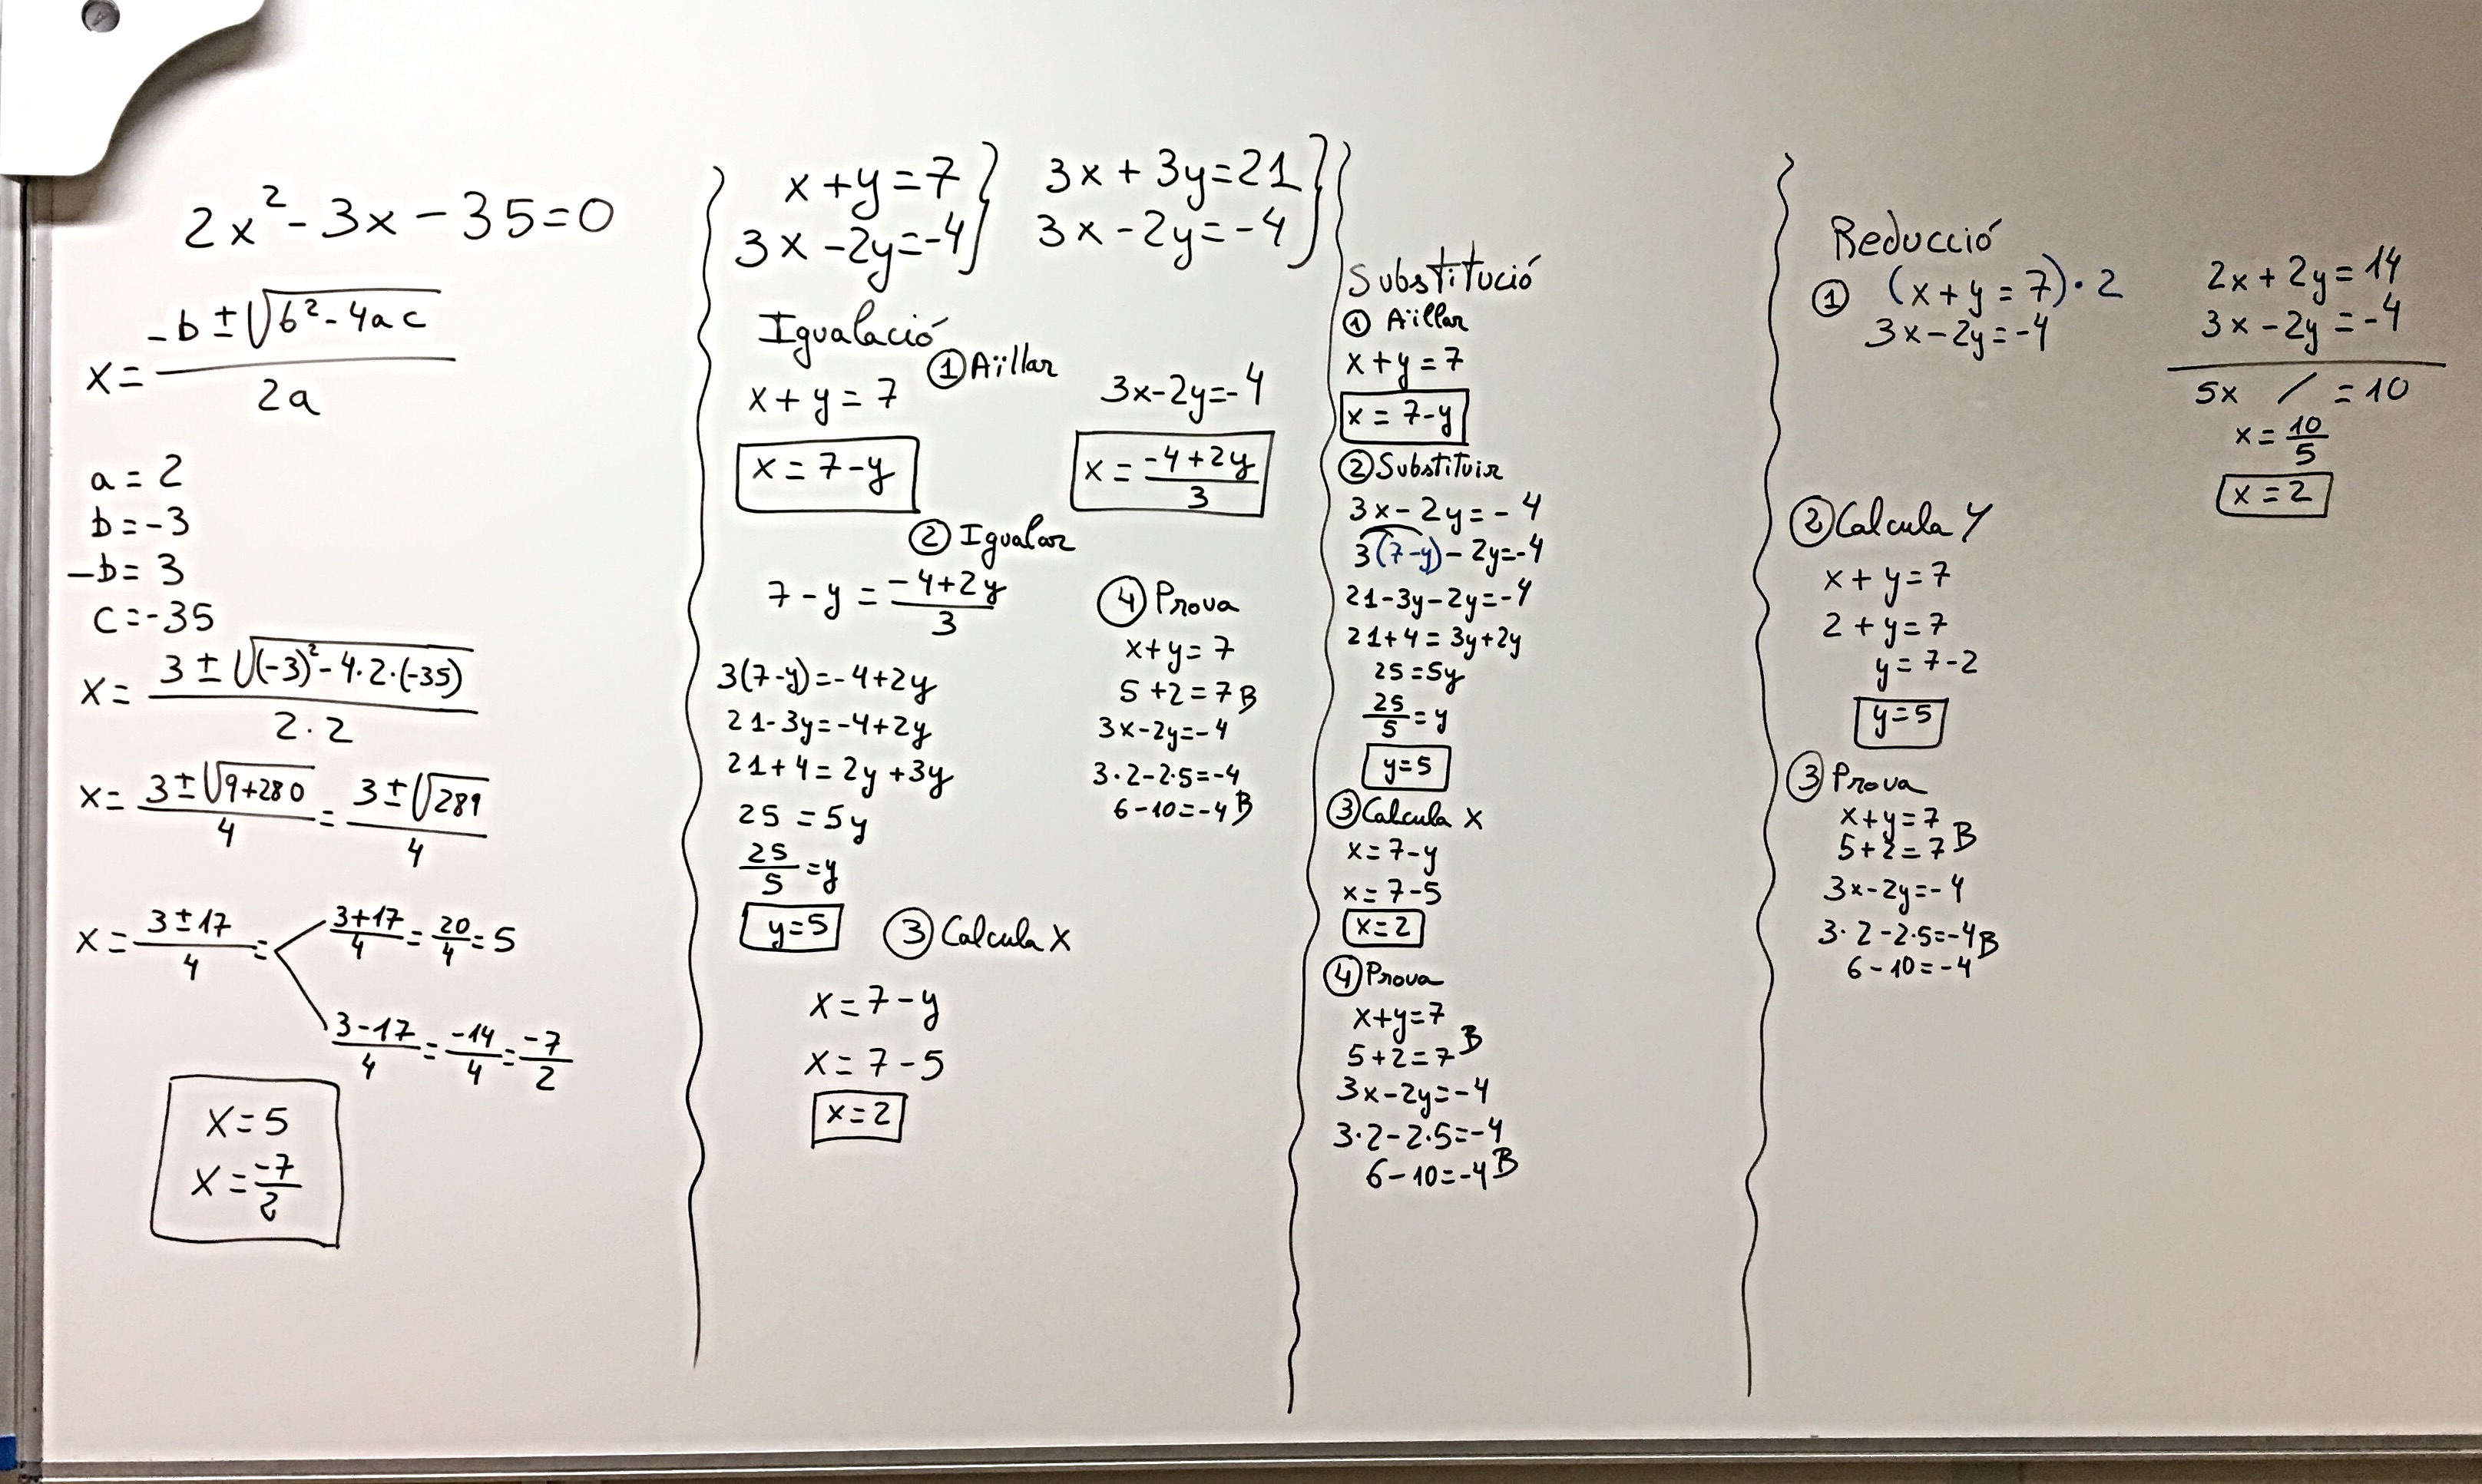 2x² - 3x - 35 = 0
x = (-b ± √(b² - 4ac)) / 2a
a = 2
b = -3
-b = 3
c = -35
x = (3 ± √((-3)² - 4·2·(-35))) / 2·2
x = (3 ± √(9+280)) / 4 = (3 ± √289) / 4
x = (3 ± 17) / 4 =
(3+17)/4 = 20/4 = 5
(3-17)/4 = -14/4 = -7/2
x = 5
x = -7/2
x + y = 7 }
3x - 2y = -4 }
3x + 3y = 21 }
3x - 2y = -4 }
Igualació
① Aïllar
x + y = 7
x = 7 - y
3x - 2y = -4
x = (-4+2y)/3
② Igualar
7 - y = (-4+2y)/3
3(7-y) = -4+2y
21 - 3y = -4+2y
21 + 4 = 2y + 3y
25 = 5y
25/5 = y
y = 5
③ Calcula x
x = 7 - y
x = 7 - 5
x = 2
④ Prova
x + y = 7
5 + 2 = 7 B
3x - 2y = -4
3·2 - 2·5 = -4
6 - 10 = -4 B
Substitució
① Aïllar
x + y = 7
x = 7 - y
② Substituir
3x - 2y = -4
3(7-y) - 2y = -4
21 - 3y - 2y = -4
21 + 4 = 3y + 2y
25 = 5y
25/5 = y
y = 5
③ Calcula x
x = 7 - y
x = 7 - 5
x = 2
④ Prova
x + y = 7
5 + 2 = 7 B
3x - 2y = -4
3·2 - 2·5 = -4
6 - 10 = -4 B
Reducció
① (x + y = 7)·2
3x - 2y = -4
2x + 2y = 14
3x - 2y = -4
5x / = 10
x = 10/5
x = 2
② Calcula Y
x + y = 7
2 + y = 7
y = 7 - 2
y = 5
③ Prova
x + y = 7
5 + 2 = 7 B
3x - 2y = -4
3·2 - 2·5 = -4 B
6 - 10 = -4